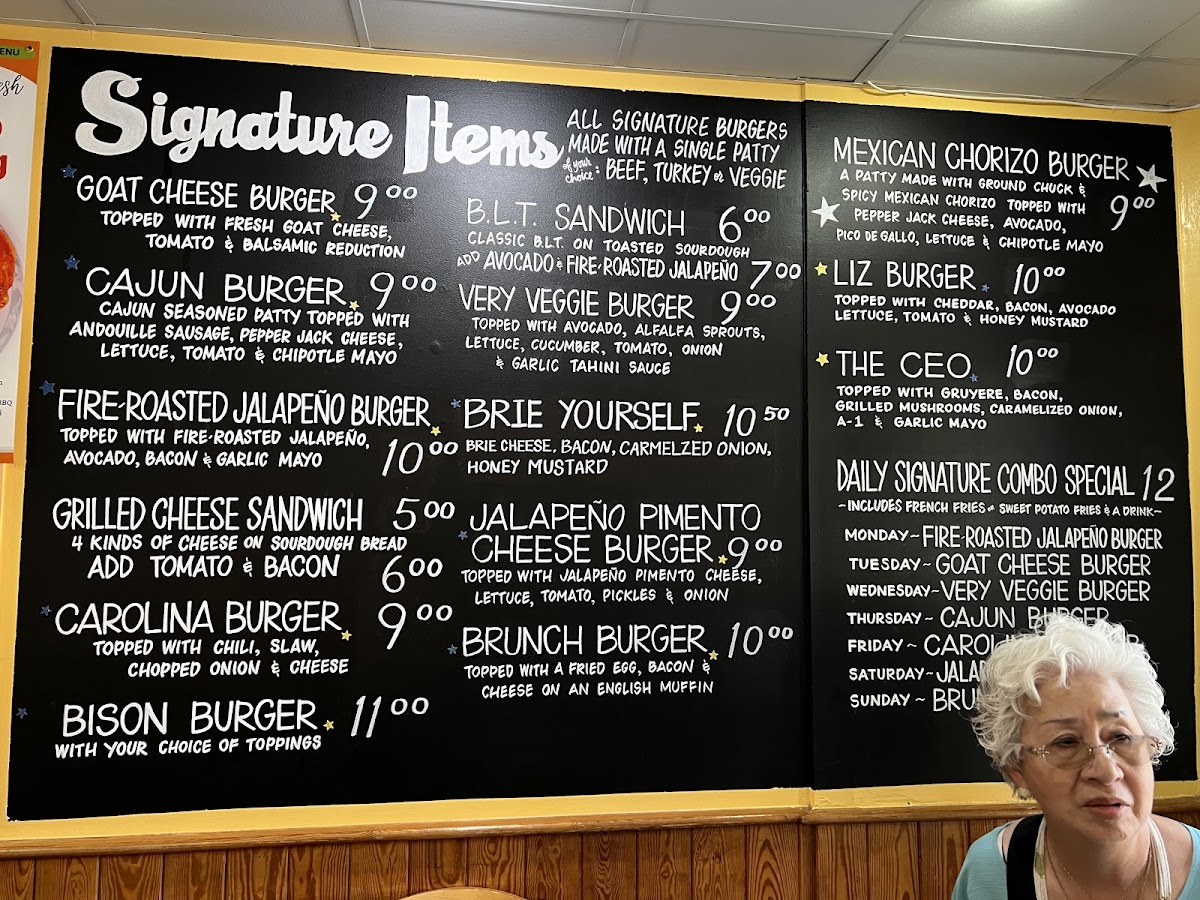 ENU
Signature Items
ALL SIGNATURE BURGERS
MADE WITH A SINGLE PATTY
of your choice: BEEF, TURKEY or VEGGIE
GOAT CHEESE BURGER 9 00
TOPPED WITH FRESH GOAT CHEESE,
TOMATO & BALSAMIC REDUCTION
CAJUN BURGER 9 00
CAJUN SEASONED PATTY TOPPED WITH
ANDOUILLE SAUSAGE, PEPPER JACK CHEESE,
LETTUCE, TOMATO & CHIPOTLE MAYO
FIRE-ROASTED JALAPEÑO BURGER
TOPPED WITH FIRE-ROASTED JALAPEÑO,
AVOCADO, BACON & GARLIC MAYO 10 00
GRILLED CHEESE SANDWICH 5 00
4 KINDS OF CHEESE ON SOURDOUGH BREAD
ADD TOMATO & BACON 6 00
CAROLINA BURGER 9 00
TOPPED WITH CHILI, SLAW,
CHOPPED ONION & CHEESE
BISON BURGER 11 00
WITH YOUR CHOICE OF TOPPINGS
B.L.T. SANDWICH 6 00
CLASSIC B.L.T. ON TOASTED SOURDOUGH
ADD AVOCADO & FIRE-ROASTED JALAPEÑO 7 00
VERY VEGGIE BURGER 9 00
TOPPED WITH AVOCADO, ALFALFA SPROUTS,
LETTUCE, CUCUMBER, TOMATO, ONION
& GARLIC TAHINI SAUCE
BRIE YOURSELF 10 50
BRIE CHEESE, BACON, CARMELZED ONION,
HONEY MUSTARD
JALAPEÑO PIMENTO
CHEESE BURGER 9 00
TOPPED WITH JALAPEÑO PIMENTO CHEESE,
LETTUCE, TOMATO, PICKLES & ONION
BRUNCH BURGER 10 00
TOPPED WITH A FRIED EGG, BACON &
CHEESE ON AN ENGLISH MUFFIN
MEXICAN CHORIZO BURGER
A PATTY MADE WITH GROUND CHUCK &
SPICY MEXICAN CHORIZO TOPPED WITH 9 00
PEPPER JACK CHEESE, AVOCADO,
PICO DE GALLO, LETTUCE & CHIPOTLE MAYO
LIZ BURGER 10 00
TOPPED WITH CHEDDAR, BACON, AVOCADO
LETTUCE, TOMATO & HONEY MUSTARD
THE CEO 10 00
TOPPED WITH GRUYERE, BACON,
GRILLED MUSHROOMS, CARAMELIZED ONION,
A-1 & GARLIC MAYO
DAILY SIGNATURE COMBO SPECIAL 12
~INCLUDES FRENCH FRIES or SWEET POTATO FRIES & A DRINK~
MONDAY~ FIRE-ROASTED JALAPEÑO BURGER
TUESDAY~ GOAT CHEESE BURGER
WEDNESDAY~ VERY VEGGIE BURGER
THURSDAY~ CAJUN BURGER
FRIDAY~ CAROLI
SATURDAY~ JALA
SUNDAY~ BRU